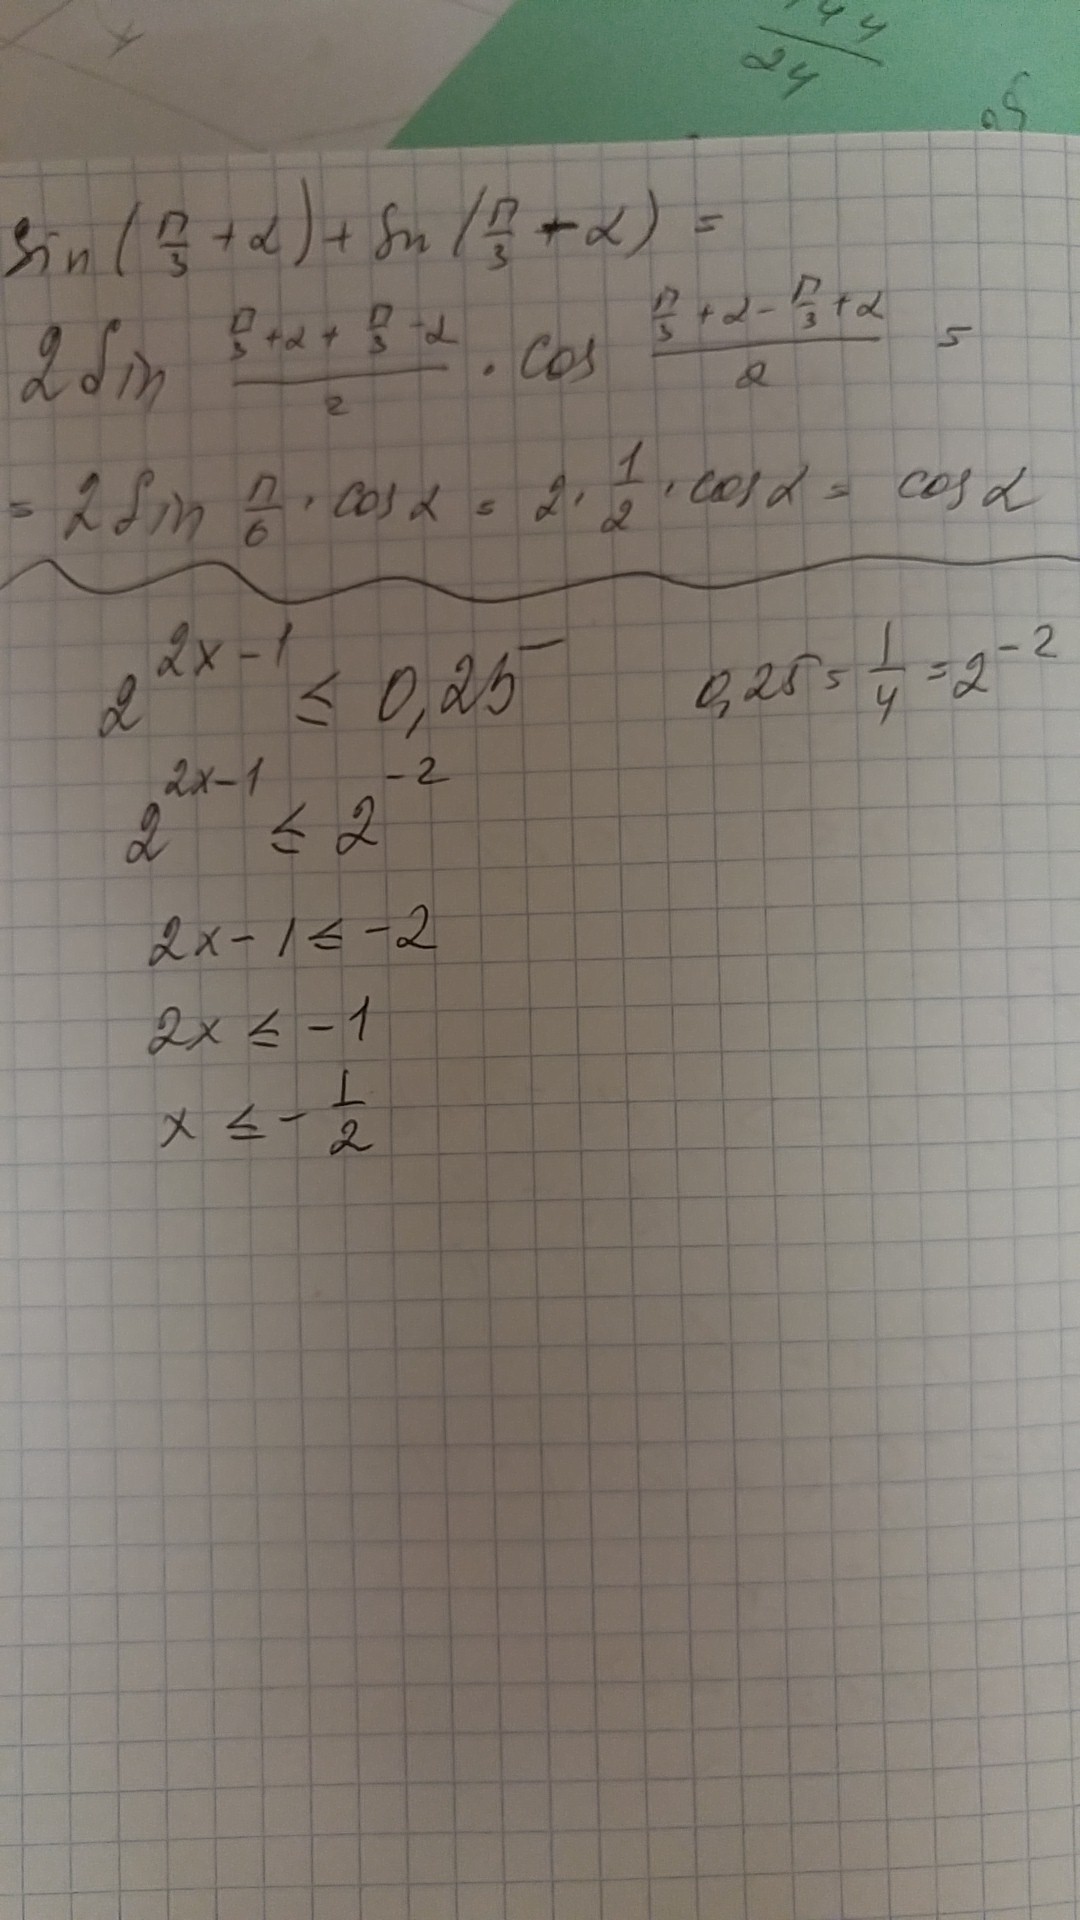 44
24
sin(π/3 + α) + sin(π/3 - α) =
2 sin (π/3 + α + π/3 - α)/2 · cos (π/3 + α - π/3 + α)/2 =
= 2 sin π/6 · cos α = 2 · 1/2 · cos α = cos α
2^(2x-1) ≤ 0,25⁻ 0,25 = 1/4 = 2^(-2)
2^(2x-1) ≤ 2^(-2)
2x - 1 ≤ -2
2x ≤ -1
x ≤ - 1/2